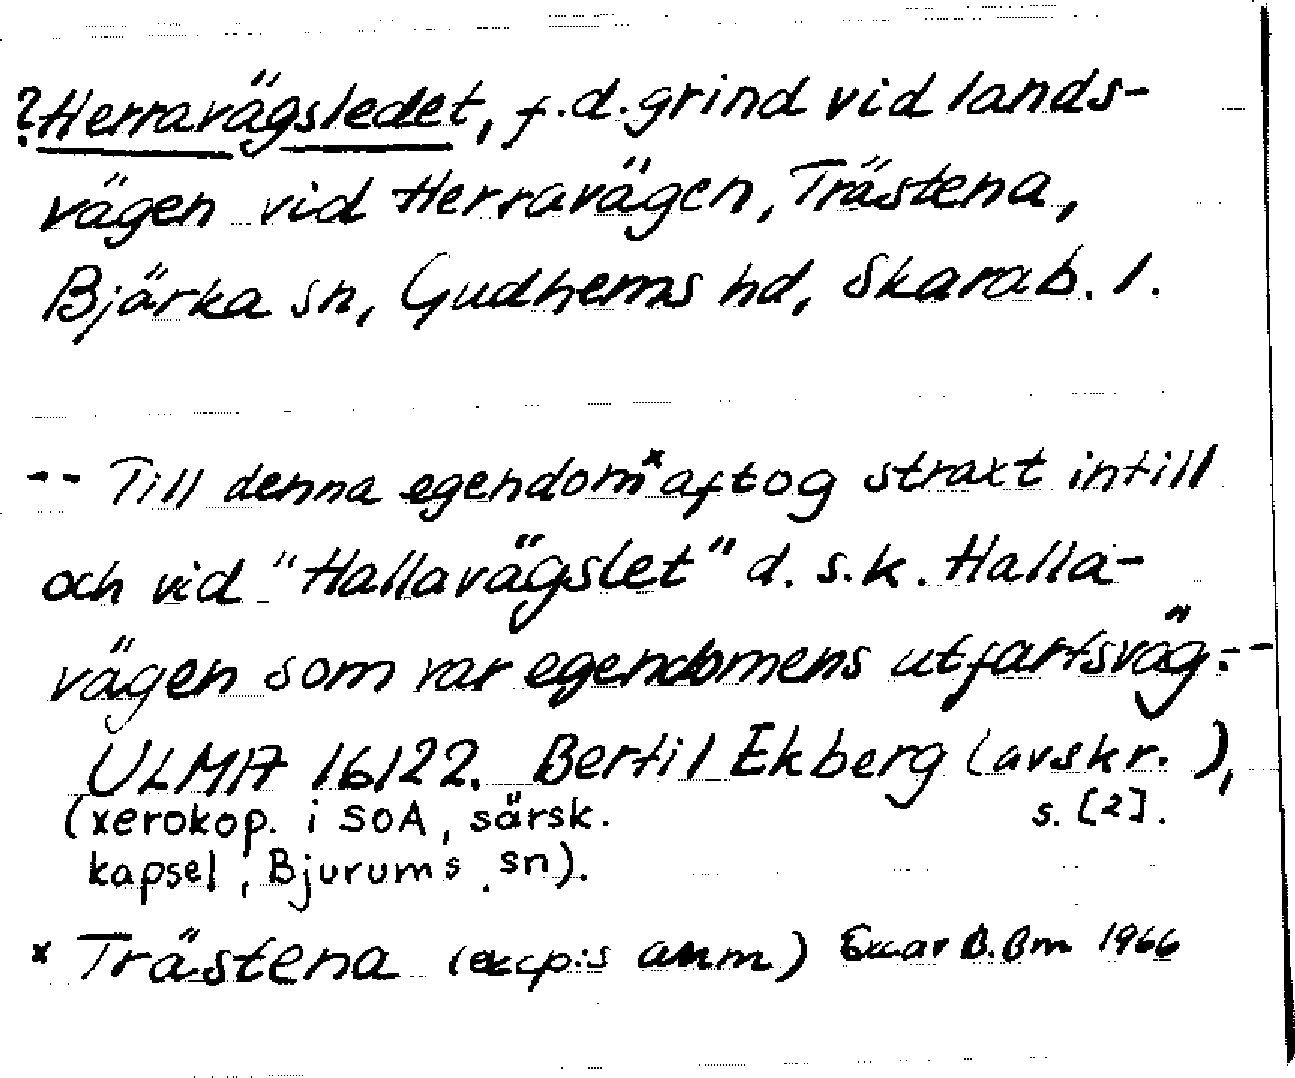 ?Herravägsledet, f.d. grind vid lands-
vägen vid Herravägen, Trästena,
Bjärka sn, Gudhems hd, Skarab. l.
-- Till denna egendom x aftog straxt intill
och vid "Hallavägslet" d. s.k. Halla-
vägen som var egendomens utfartsväg.--
ULMA 16122. Bertil Ekberg (avskr. ),
(xerokop. i SOA, särsk. s. [2].
kapsel, Bjurums sn).
x Trästena (excp:s anm) B. Bm 1966